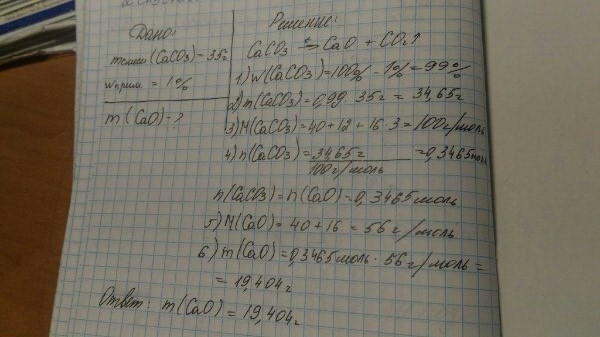 Дано:
mсмеси (CaCO3) - 35г
wприм. = 1%
m(CaO) - ?
Решение:
CaCO3 t→ CaO + CO2↑
1) W(CaCO3) = 100% - 1% = 99%
2) m(CaCO3) = 0,99 · 35г = 34,65г
3) M(CaCO3) = 40 + 12 + 16·3 = 100г/моль
4) n(CaCO3) = 34,65г / 100г/моль = 0,3465моль
n(CaCO3) = n(CaO) = 0,3465моль
5) M(CaO) = 40 + 16 = 56г/моль
6) m(CaO) = 0,3465моль · 56г/моль =
= 19,404г
Ответ: m(CaO) = 19,404г